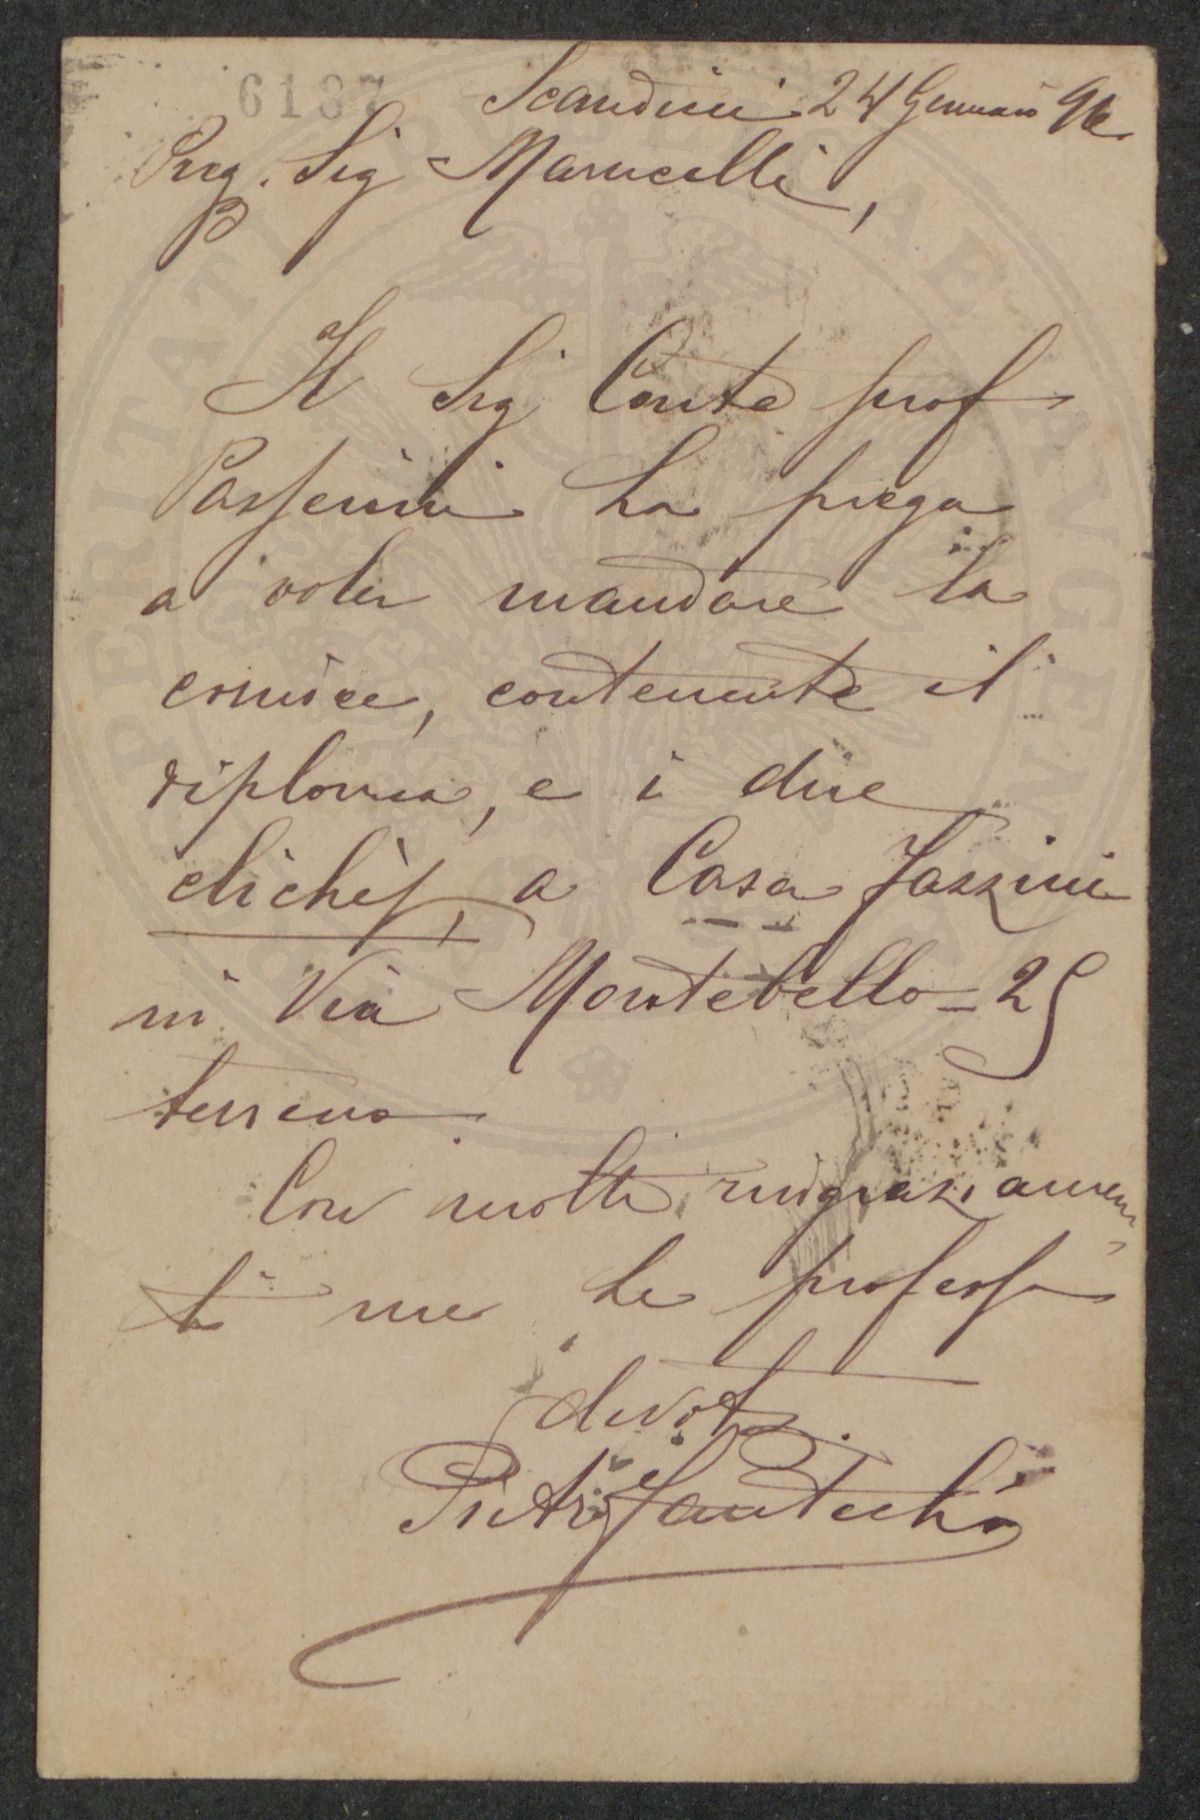 6137
Scandicci 24 Gennaio 96
Preg. Sig Marucelli,
Il Sig Conte prof
Passerini La prega
a voler mandare la
cornice, contenente il
diploma, e i due
clichès, a Casa Fazzini
in Via Montebello - 25
terreno.
Con molti ringraziamen
ti me Le professo
devot
Pietro Fantechi